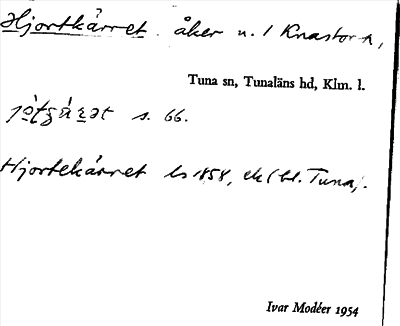 Hjortkärret. åker u. 1 Knastorp,
Tuna sn, Tunaläns hd, Klm. l.
s. 66.
Hjortekärret ls 1858, ek (bl. Tuna).
Ivar Modéer 1954